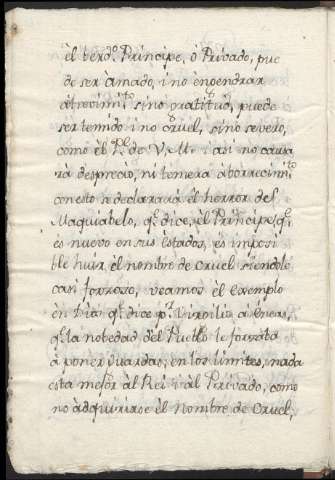 èl berdᵒ. Principe, ò Privado, pue
de ser àmado, i no engendrar
atrevimiᵗᵒ sino gratitud, puede
ser temido i no cruel, sino severo,
como èl Pᵉ. de V. M. i asi no causa
rà desprecio, ni temerà àborrecimiᵗᵒ
con esto se declararà èl herror del
Maquiabelo, qᵉ. dice, èl Principe qᵉ.
ès nuevo en sus èstados, ès imposi
ble huir èl nombre de Cruel siendole
casi forzoso, veamos èl exemplo
en Dido qᵉ. dice pʳ. Virgilio à Eneas,
qᵉ. la nobedad del Pueblo le forzaba
à poner Guardas, en los limites, nada
esta mejor àl Rei i àl Privado, como
no àdquirirse èl Nombre de Cruel,